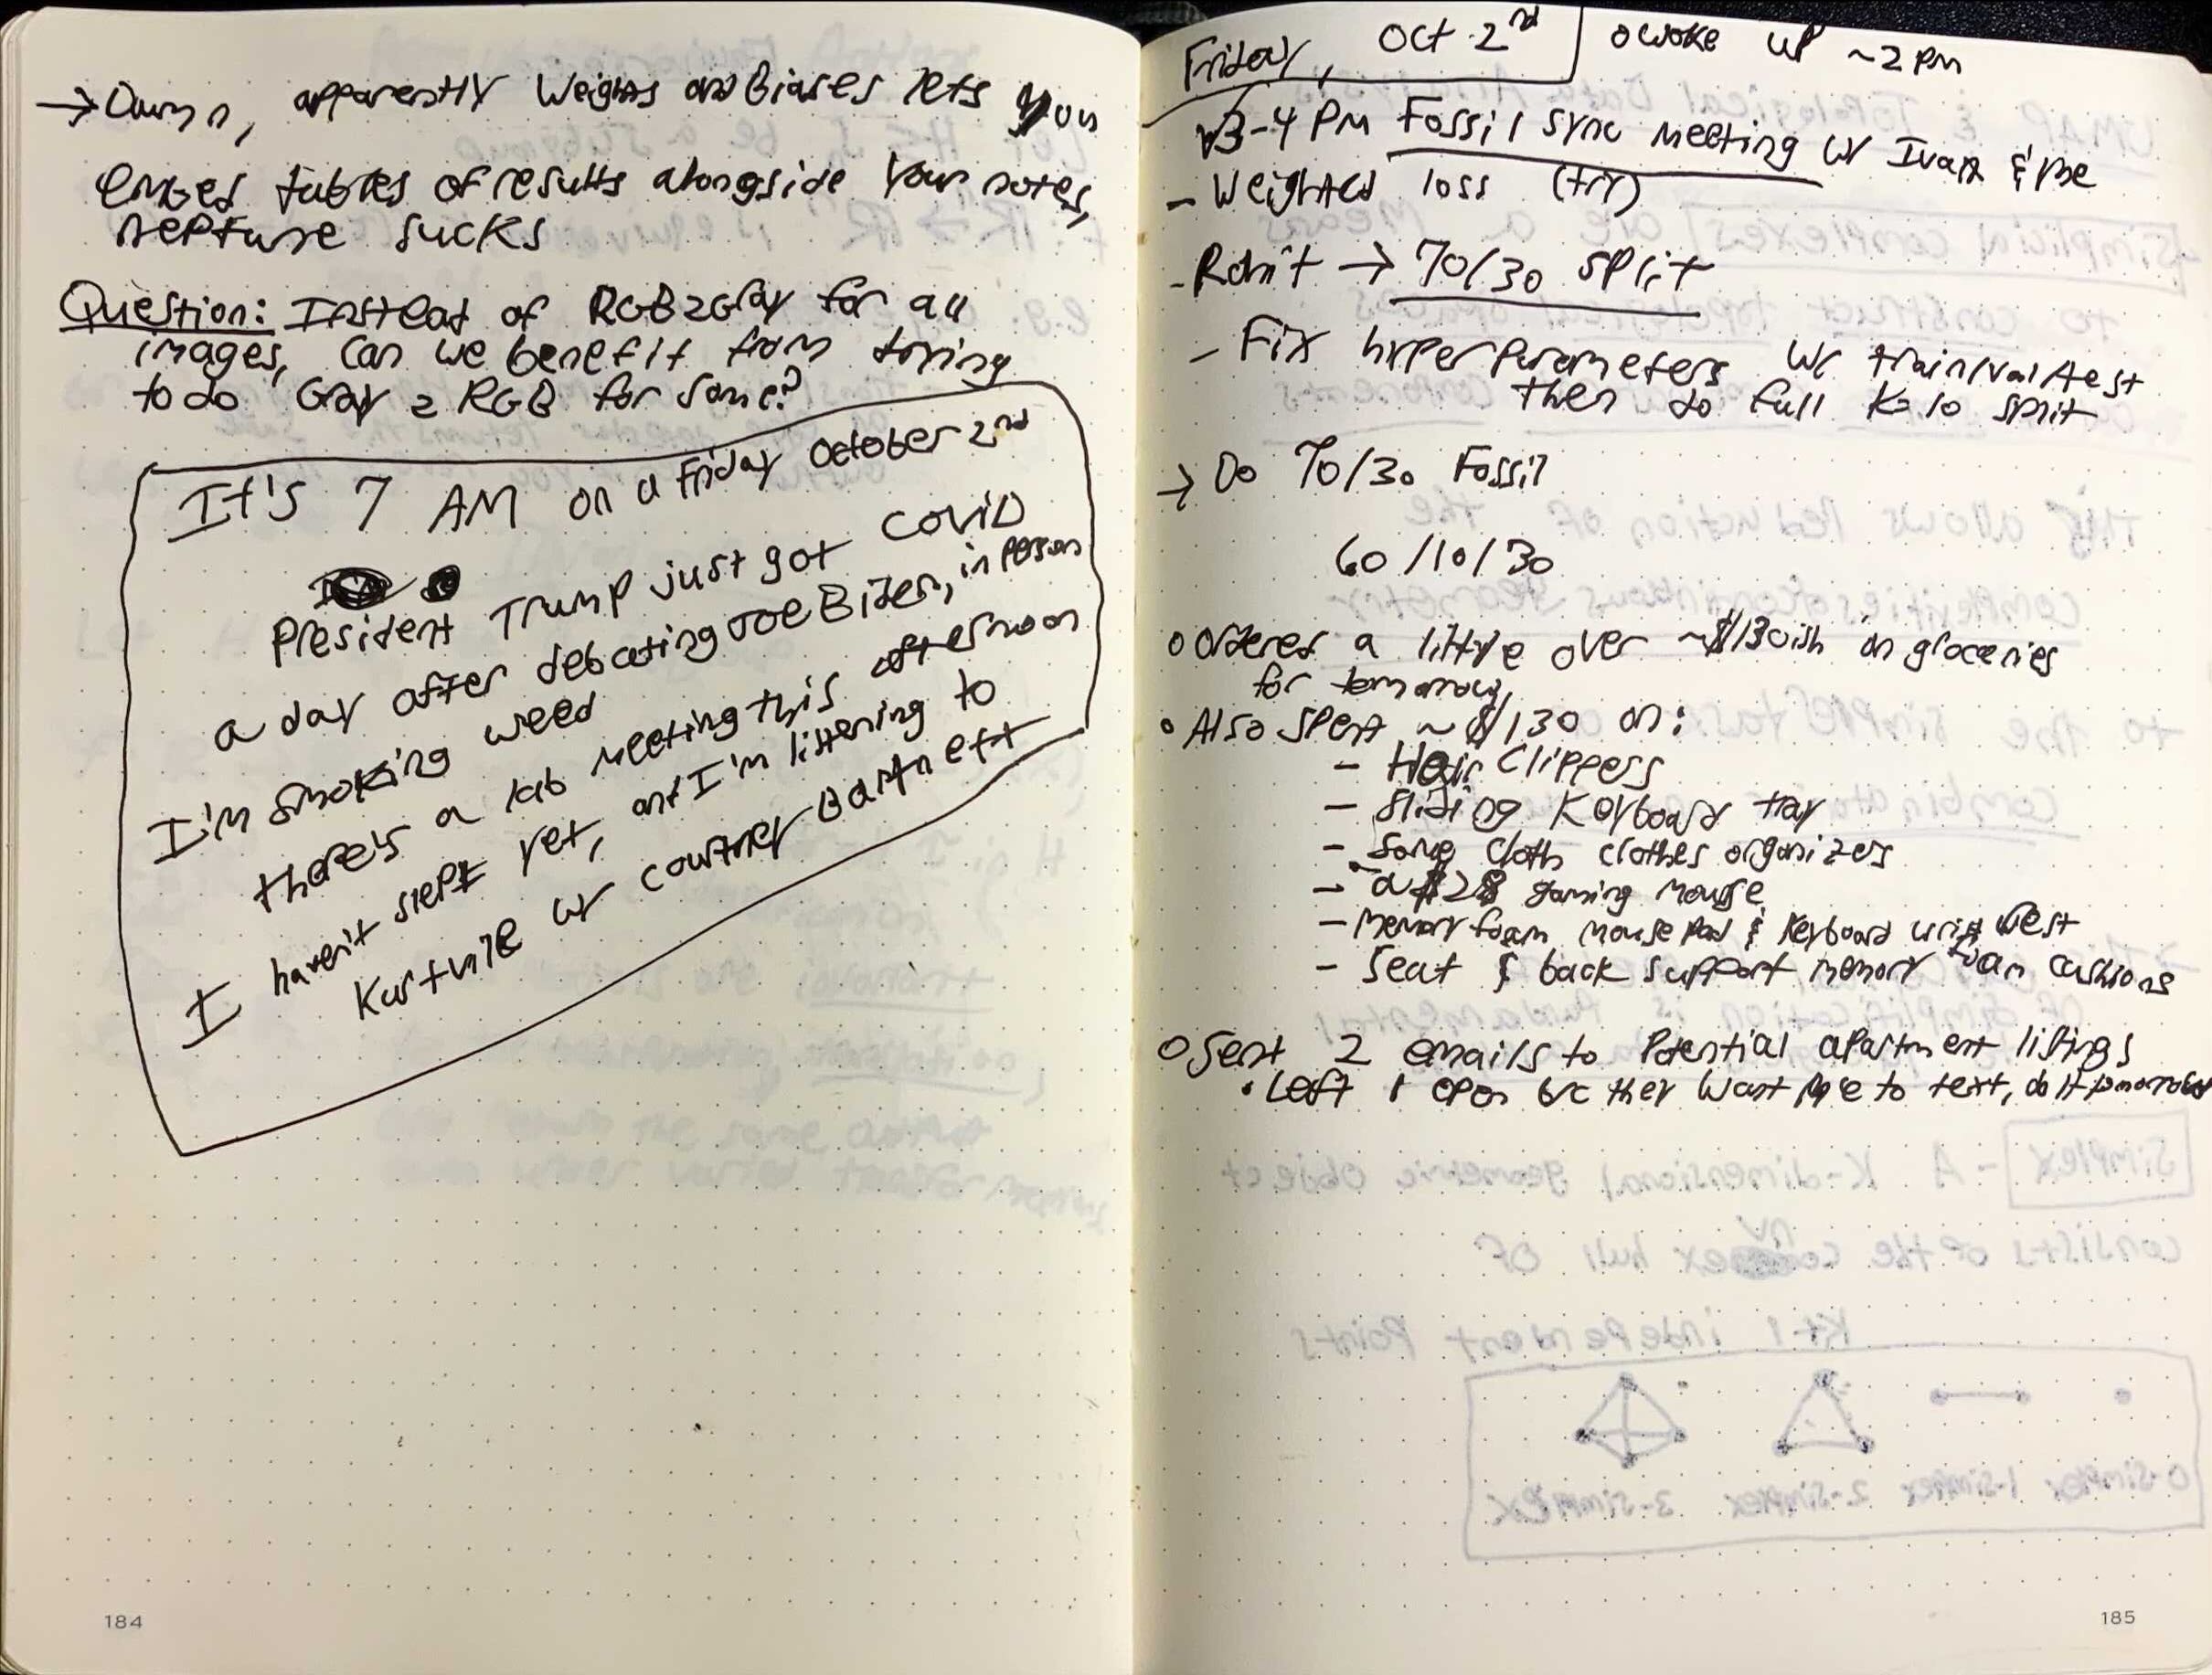 → Damn, apparently Weights and Biases lets you
embed tables of results alongside your notes,
neptune sucks
Question: Instead of RGB2Gray for all
images, can we benefit from trying
to do Gray 2 RGB for some?
It's 7 AM on a Friday October 2nd
President Trump just got COVID
a day after debating Joe Biden, in person
I'm smoking weed
there's a lab meeting this afternoon
I haven't slept yet, and I'm listening to
Kurt Vile w/ Courtney Barnett
184
Friday, Oct 2nd
o woke up ~2 pm
3-4 PM Fossil sync meeting w/ Ivan & me
- Weighted loss (try)
- Rohit → 70/30 split
- Fix hyperparameters w/ train/val/test
then do full K=10 split
→ Do 70/30 Fossil
60/10/30
o Ordered a little over ~$130ish on groceries
for tomorrow,
• Also spent ~$130 on:
- Hair Clippers
- sliding keyboard tray
- some cloth clothes organizers
- a $28 gaming mouse
- memory foam mouse pad & keyboard wrist rest
- seat & back support memory foam cushions
o Sent 2 emails to potential apartment listings
• Left 1 open bc they want me to text, do it tomorrow
Simplex - A K-dimensional geometric object
consists of the convex hull of
K+1 independent points
0-simplex 1-simplex 2-simplex 3-simplex
185